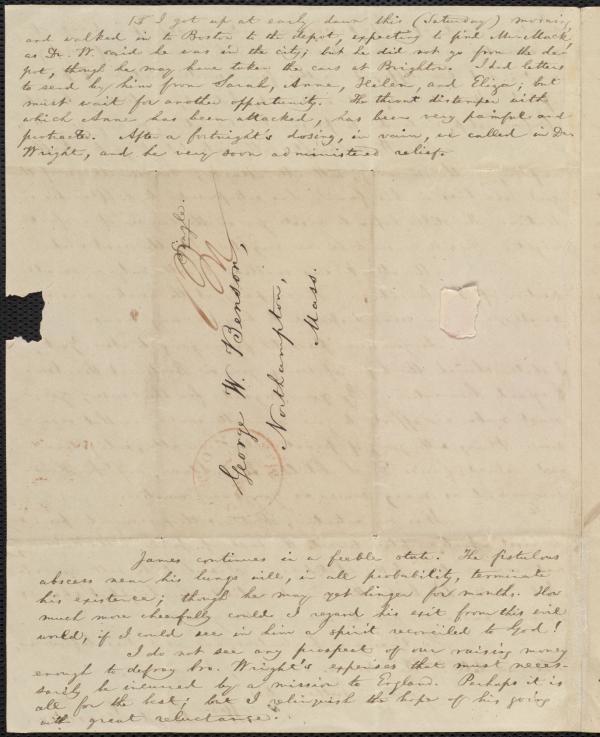 I got up at early dawn this (Saturday) morning,
and walked in to Boston to the depot, expecting to find Mr. Mack,
as Dr. W. said he was in the city; but he did not go from the de-
pot, though he may have taken the cars at Brighton. I had letters
to send by him from Sarah, Anne, Helen, and Eliza; but
must wait for another opportunity. The throat distemper with
which Anne has been attacked, has been very painful and
protracte. After a fortnight's dosing, in vain, we called in Dr.
Wright, and he very soon administered relief.
Single.
George W. Benson,
Northampton,
Mass.
James continues in a feeble state. The fistulous
abscess near his lungs will, in all probability, terminate
his existence; though he may yet linger for months. How
much more cheerfully could I regard his exit from this evil
world, if I could see in him a spirit reconciled to God!
I do not see any prospect of our raising money
enough to defray bro. Wright's expenses that must neces-
sarily be incurred by a mission to England. Perhaps it is
all for the best; but I relinquish the hope of his going
with great reluctance.